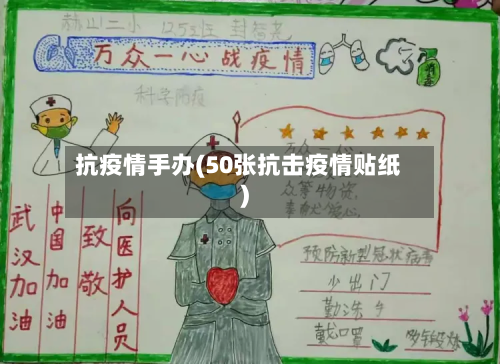 赫山二小 125班
万众一心 战疫情
科学防疫
抗疫情手办(50张抗击疫情贴纸
)
武汉加油
中国加油
致敬
向医护人员
万众一心
众筹物资
预防新型冠状病毒
少出门
勤洗手
戴口罩